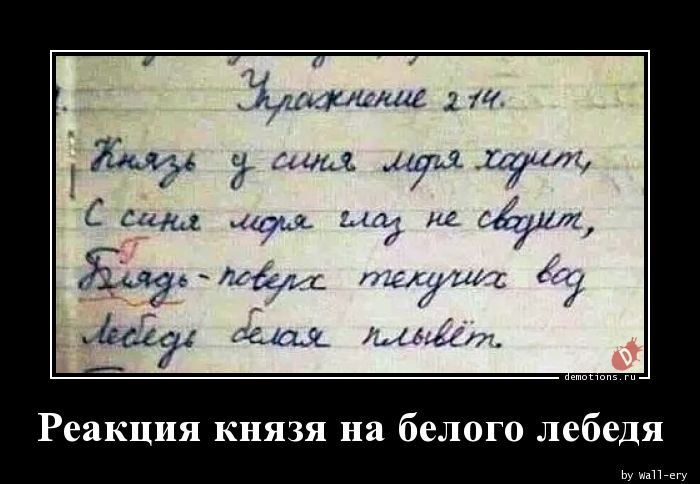 Упражнение 214.
Князь у синя моря ходит,
С синя моря глаз не сводит,
Г
Блядь - поверх текучих вод
Лебедь белая плывёт.
demotions.ru
Реакция князя на белого лебедя
by Wall-ery